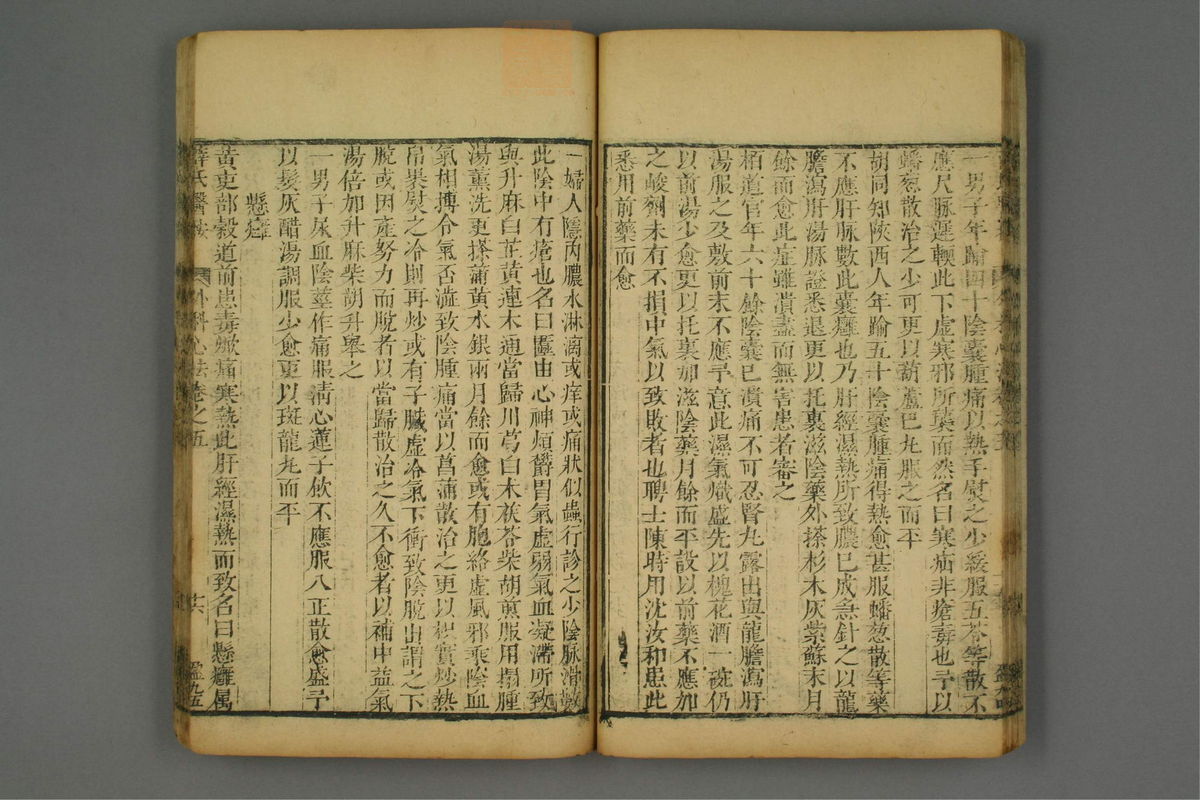 一男子年踰四十陰囊腫痛以熱手熨之少緩服五苓等散不
應尺脉遲輭此下虛寒邪所襲而然名曰寒疝非瘡毒也予以
蟠葱散治之少可更以葫蘆巴丸服之而平
胡同知陝西人年踰五十陰囊腫痛得熱愈甚服蟠葱散等藥
不應肝脉數此囊癰也乃肝經濕熱所致膿已成急針之以龍
膽瀉肝湯脉證悉退更以托裏滋陰藥外搽杉木灰紫蘇末月
餘而愈此症雖潰盡而無害患者審之
栢道官年六十餘陰囊已潰痛不可忍腎丸露出與龍膽瀉肝
湯服之及敷前末不應予意此濕氣熾盛先以槐花酒一碗仍
以前湯少愈更以托裏加滋陰藥月餘而平設以前藥不應加
之峻劑未有不損中氣以致敗者也聘士陳時用沈汝和患此
悉用前藥而愈
一婦人隱內膿水淋漓或痒或痛狀似蟲行診之少陰脉滑數
此陰中有瘡也名曰䘌由心神煩鬱胃氣虛弱氣血凝滯所致
與升麻白芷黃連木通當歸川芎白术茯苓柴胡煎服用搨腫
湯薰洗更搽蒲黃水銀兩月餘而愈或有胞絡虛風邪乘陰血
氣相搏令氣否澁致陰腫痛當以菖蒲散治之更以枳實炒熱
帛裹熨之冷則再炒或有子臟虛冷氣下衝致陰脫出謂之下
脫或因産努力而脫者以當歸散治之久不愈者以補中益氣
湯倍加升麻柴胡升舉之
一男子尿血陰莖作痛服清心蓮子飲不應服八正散愈盛予
以髮灰醋湯調服少愈更以斑龍丸而平
懸癰
黃吏部穀道前患毒焮痛寒熱此肝經濕熱而致名曰懸癰属
薛氏醫按
外科心法卷之五
廿六
盈九五